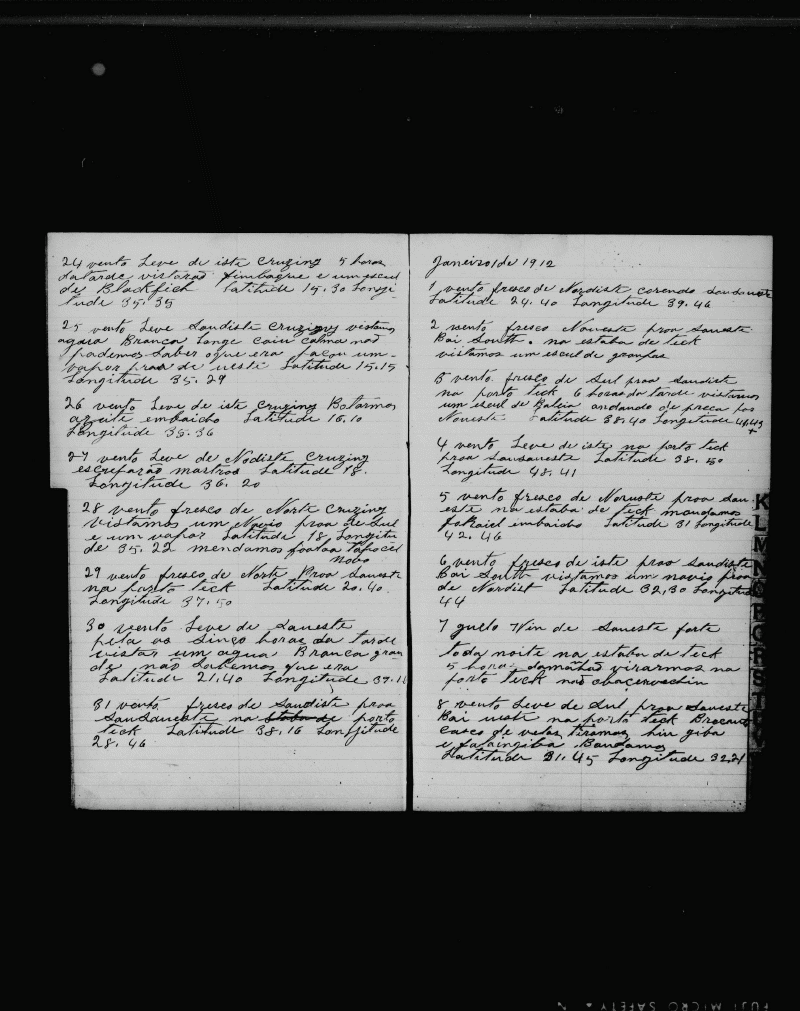 24 vento Leve de iste Cruzing 5 horas
datarde vistarão fimbaque e um escul
de Blackfich Latitude 15.30 Longi-
tude 35.35
25 vento Leve Saudiste Cruzing vistamos
agua Branca Longe Caiu Calma não
podemos Saber oque era façou um-
vapor proa de ueste Latitude 15.15
Longitude 35.29
26 vento Leve de iste Cruzing Botarmos
azeite embaicho Latitude 16.10
Longitude 35.36
27 vento Leve de Nodiste Cruzing
escrefarão mastros Latitude 18.
Longitude 36.20
28 vento fresco de Norte Cruzing
vistamos um Navio proa de Sul
e um vapor Latitude 18 Longitu
de 35.22 mendamos
novo
29 vento fresco de Norte Proa Saueste
na porto teck Latitude 20.40
Longitude 37.50
30 vento Leve de Saueste
pela as Sinço horas da tarde
vistar um agua Branca gran
de não Sabemos que era
Latitude 21.40 Longitude 37.11
31 vento fresco de Saudiste proa
SauSaueste na porto
teck Latitude 38.16 Longitude
28.46
Janeiro 1 de 1912
1 vento fresco de Nordiste corendo Sausaueste
Latitude 24.40 Longitude 39.46
2 vento fresco Noueste proa Saueste
Bai South. na estaba de teck
vistamos um escul de
3 vento fresco de Sul proa Saudiste
na porto teck 6 horas da tarde vistamos
um escul de Baleia andando de preca
Noueste Latitude 38.40 Longitude 44,43
4 vento Leve de iste na porto teck
proa Sausaueste Latitude 38.50
Longitude 48.41
5 vento fresco de Noruste proa Sau-
este na estaba de teck mandamos
embaicho Latitude 31 Longitude
42.46
6 vento fresco de iste proa Saudiste
Bai South vistamos um navio proa
de Nordist Latitude 32,30 Longitude
44
7 guelo Win de Saueste forte
toda noite na estaba de teck
5 horas damanhão virarmos na
porto teck não
8 vento Leve de Sul proa Saueste
Bai ueste na porto teck
casco de velas tiramos
e Bandamos
Latitude 31.45 Longitude 32,21
K
L
M
N
O
P
Q
R
S
T
FUJI MICRO SAFETY